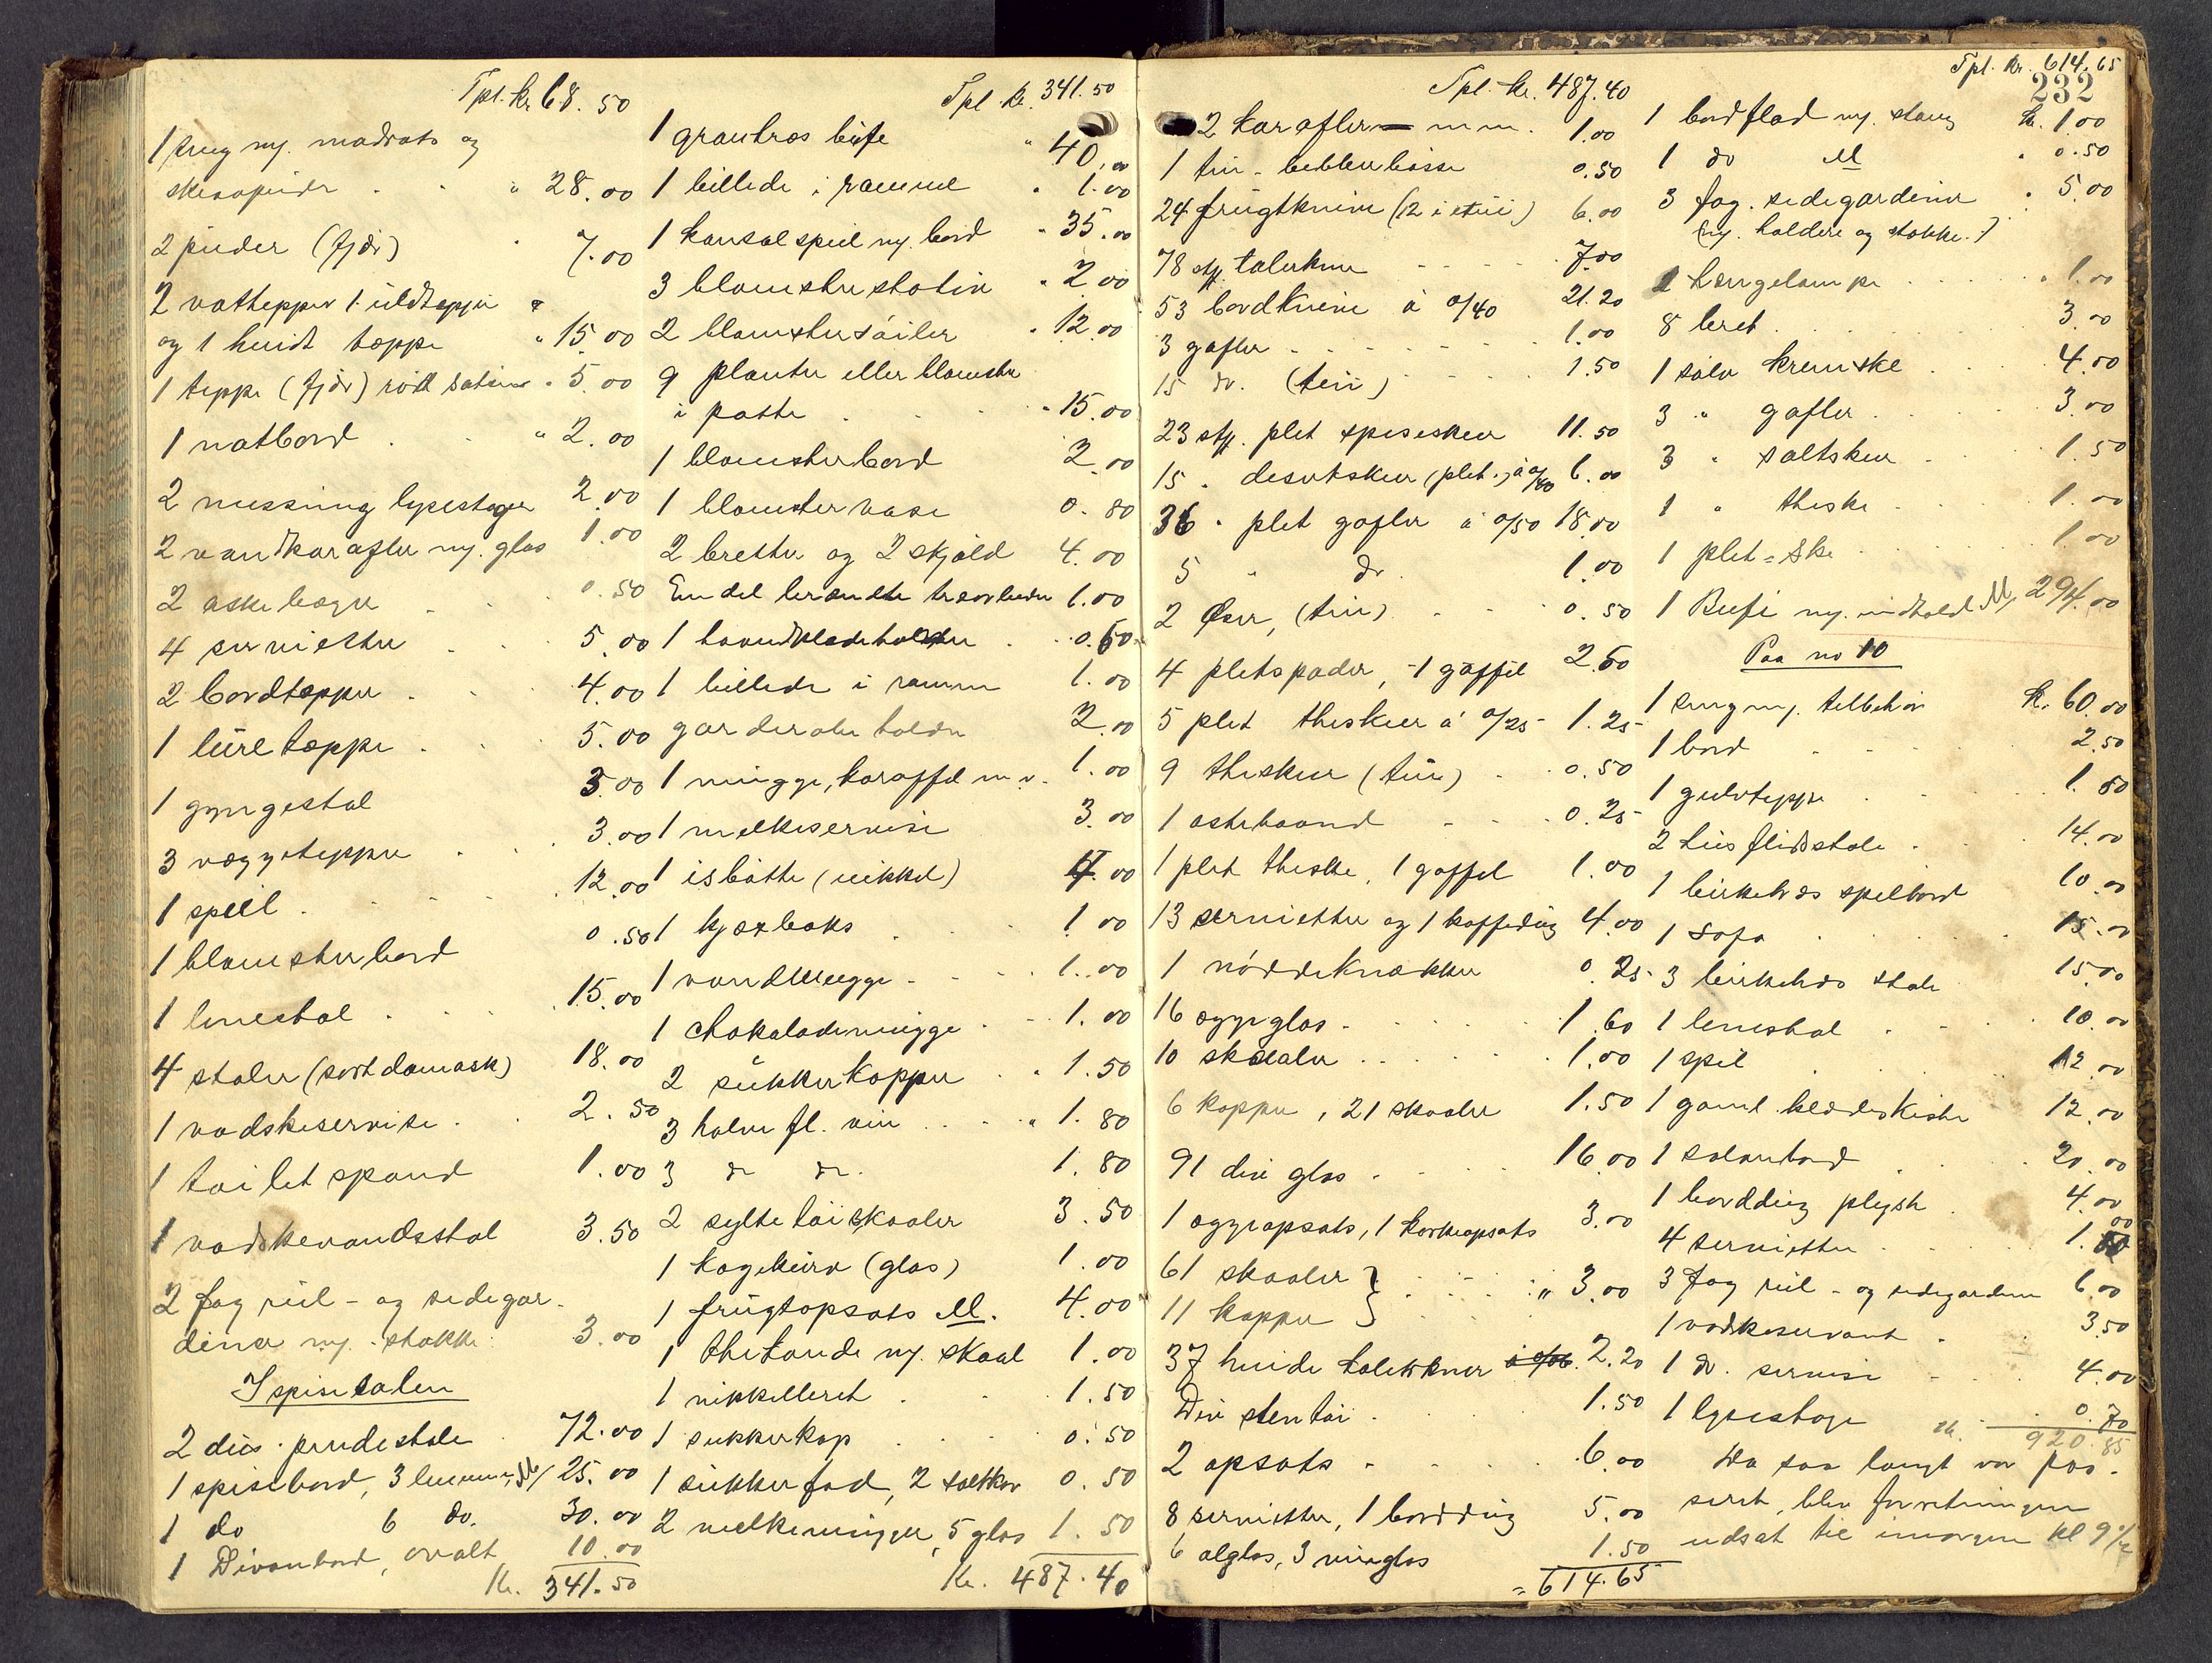 Tpt. kr 68.50
1 seng m/. madrats og
skraapude " 28.00
2 puder (fjdr) 7.00
2 vattepper 1 uldteppe
og 1 hvidt tæppe " 15.00
1 teppe (fjdr) rött satin " 5.00
1 natbord " 2.00
2 messing lysestager 2.00
2 vandkarafler m/. glas 1.00
2 askebæger 0.50
4 servietter 5.00
2 bordtepper 4.00
1 tæppe 5.00
1 gyngestol 3.00
3 væggetepper 3.00
1 speil 12.00
1 blomsterbord 0.50
1 lenestol 15.00
4 stoler (sort damask) 18.00
1 vadskeservise 2.50
1 toiletspand 1.00
1 vadskevandsstol 3.50
2 fag rul- og sidegar-
diner m/. stokke 3.00
I spisesalen
2 dus. pindestole 72.00
1 spisebord, 3 lemmer, M/ 25.00
1 do 6 do. 30.00
1 Divanbord, ovalt 10.00
Kr. 341.50
Tpt kr. 341.50
1 grantræs bufe " 40.00
1 billede i ramme " 1.00
1 konsolspeil m/. bord " 35.00
3 blomsterstativ " 2.00
2 blomstersöiler " 12.00
9 planter eller blomster
i potte " 15.00
1 blomsterbord 2.00
1 blomstervase 0.80
2 bretter og 2 skjold 4.00
En del brændte træarbeider 1.00
1 haandklædeholder 0.60
1 billede i ramme 1.00
garderobeholder 2.00
1 mugge, karaffel m.v. 1.00
1 melkeservise 3.00
1 isbötte (nikkel) 4.00
1 kjæxboks 1.00
1 vandmugge 1.00
1 chokolademugge 1.00
2 sukkerkopper " 1.50
3 halve fl. vin " 1.80
3 do do. 1.80
2 syltetöiskaaler 3.50
1 kagekurv (glas) 1.00
1 frugtopsats M. 4.00
1 thekande m/. skaal 1.00
1 nikkelbret 1.50
1 sukkerkop 0.50
1 sukkerfad, 2 saltkar 0.50
2 melkemugger, 5 glas 1.50
Kr. 487.40
Tpt. kr. 487.40
2 karafler m.m. 1.00
1 tin- bösse 0.50
24 frugtknive (12 i etui) 6.00
78 stk. talerkner 7.00
53 bordknive à 0/40 21.20
3 gafler 1.00
15 do. (tin) 1.50
23 stk. plet spiseskeer 11.50
15 " desertskeer (plet.) à 0/40 6.00
36 " plet gafler à 0/50 18.00
5 " do 1.00
2 Öser, (tin) 0.50
4 pletspader, 1 gaffel 2.50
5 plet theskeer à 0/25 1.25
9 theskeer (tin) 0.50
1 ostehaand 0.25
1 plet theske, 1 gaffel 1.00
13 servietter og 1 kaffedug 4.00
1 nöddeknækker 0.25
16 æggeglas 1.60
10 skaaler 1.00
6 kopper, 21 skaaler 1.50
91 div glas 16.00
1 æggeopsats, 1 opsats 3.00
61 skaaler }
11 kopper } " 3.00
37 hvide talerkner 2.20
Div stentöi 1.50
2 opsats 6.00
8 servietter, 1 borddug 5.00
6 ölglas, 3 vinglas 1.50
= 614.65
Tpt. kr. 614.65
232
1 bordflag m/. stang kr. 1.00
1 do M " 0.50
3 fag. sidegardiner " 5.00
(m/. holdere og stokke.)
1 hængelampe " 1.00
8 bret 3.00
1 sölv kremske 4.00
3 " gafler 3.00
3 " saltskeer 1.50
1 " theske 1.00
1 plet=ske 1.00
1 Bufe m/. indhold M/ 294.00
Paa no 10
1 seng m/. tilbehör kr. 60.00
1 bord 2.50
1 gulvteppe 1.50
2 flidsstole 14.00
1 birketræs spelbord 10.00
1 Sofa 15.00
3 birketræs stole 15.00
1 lenestol 10.00
1 speil 12.00
1 gaml. klædeskiste 12.00
1 salonbord 20.00
1 borddug plysch 4.00
4 servietter 1.00
3 Fag rul- og sidegardiner 6.00
1 vadskeservant 3.50
1 do. servise 4.00
1 lysestage 0.70
kr. 920.85
Da saa langt var pas-
seret, blev forretningen
udsat til imorgen kl 9 1/2